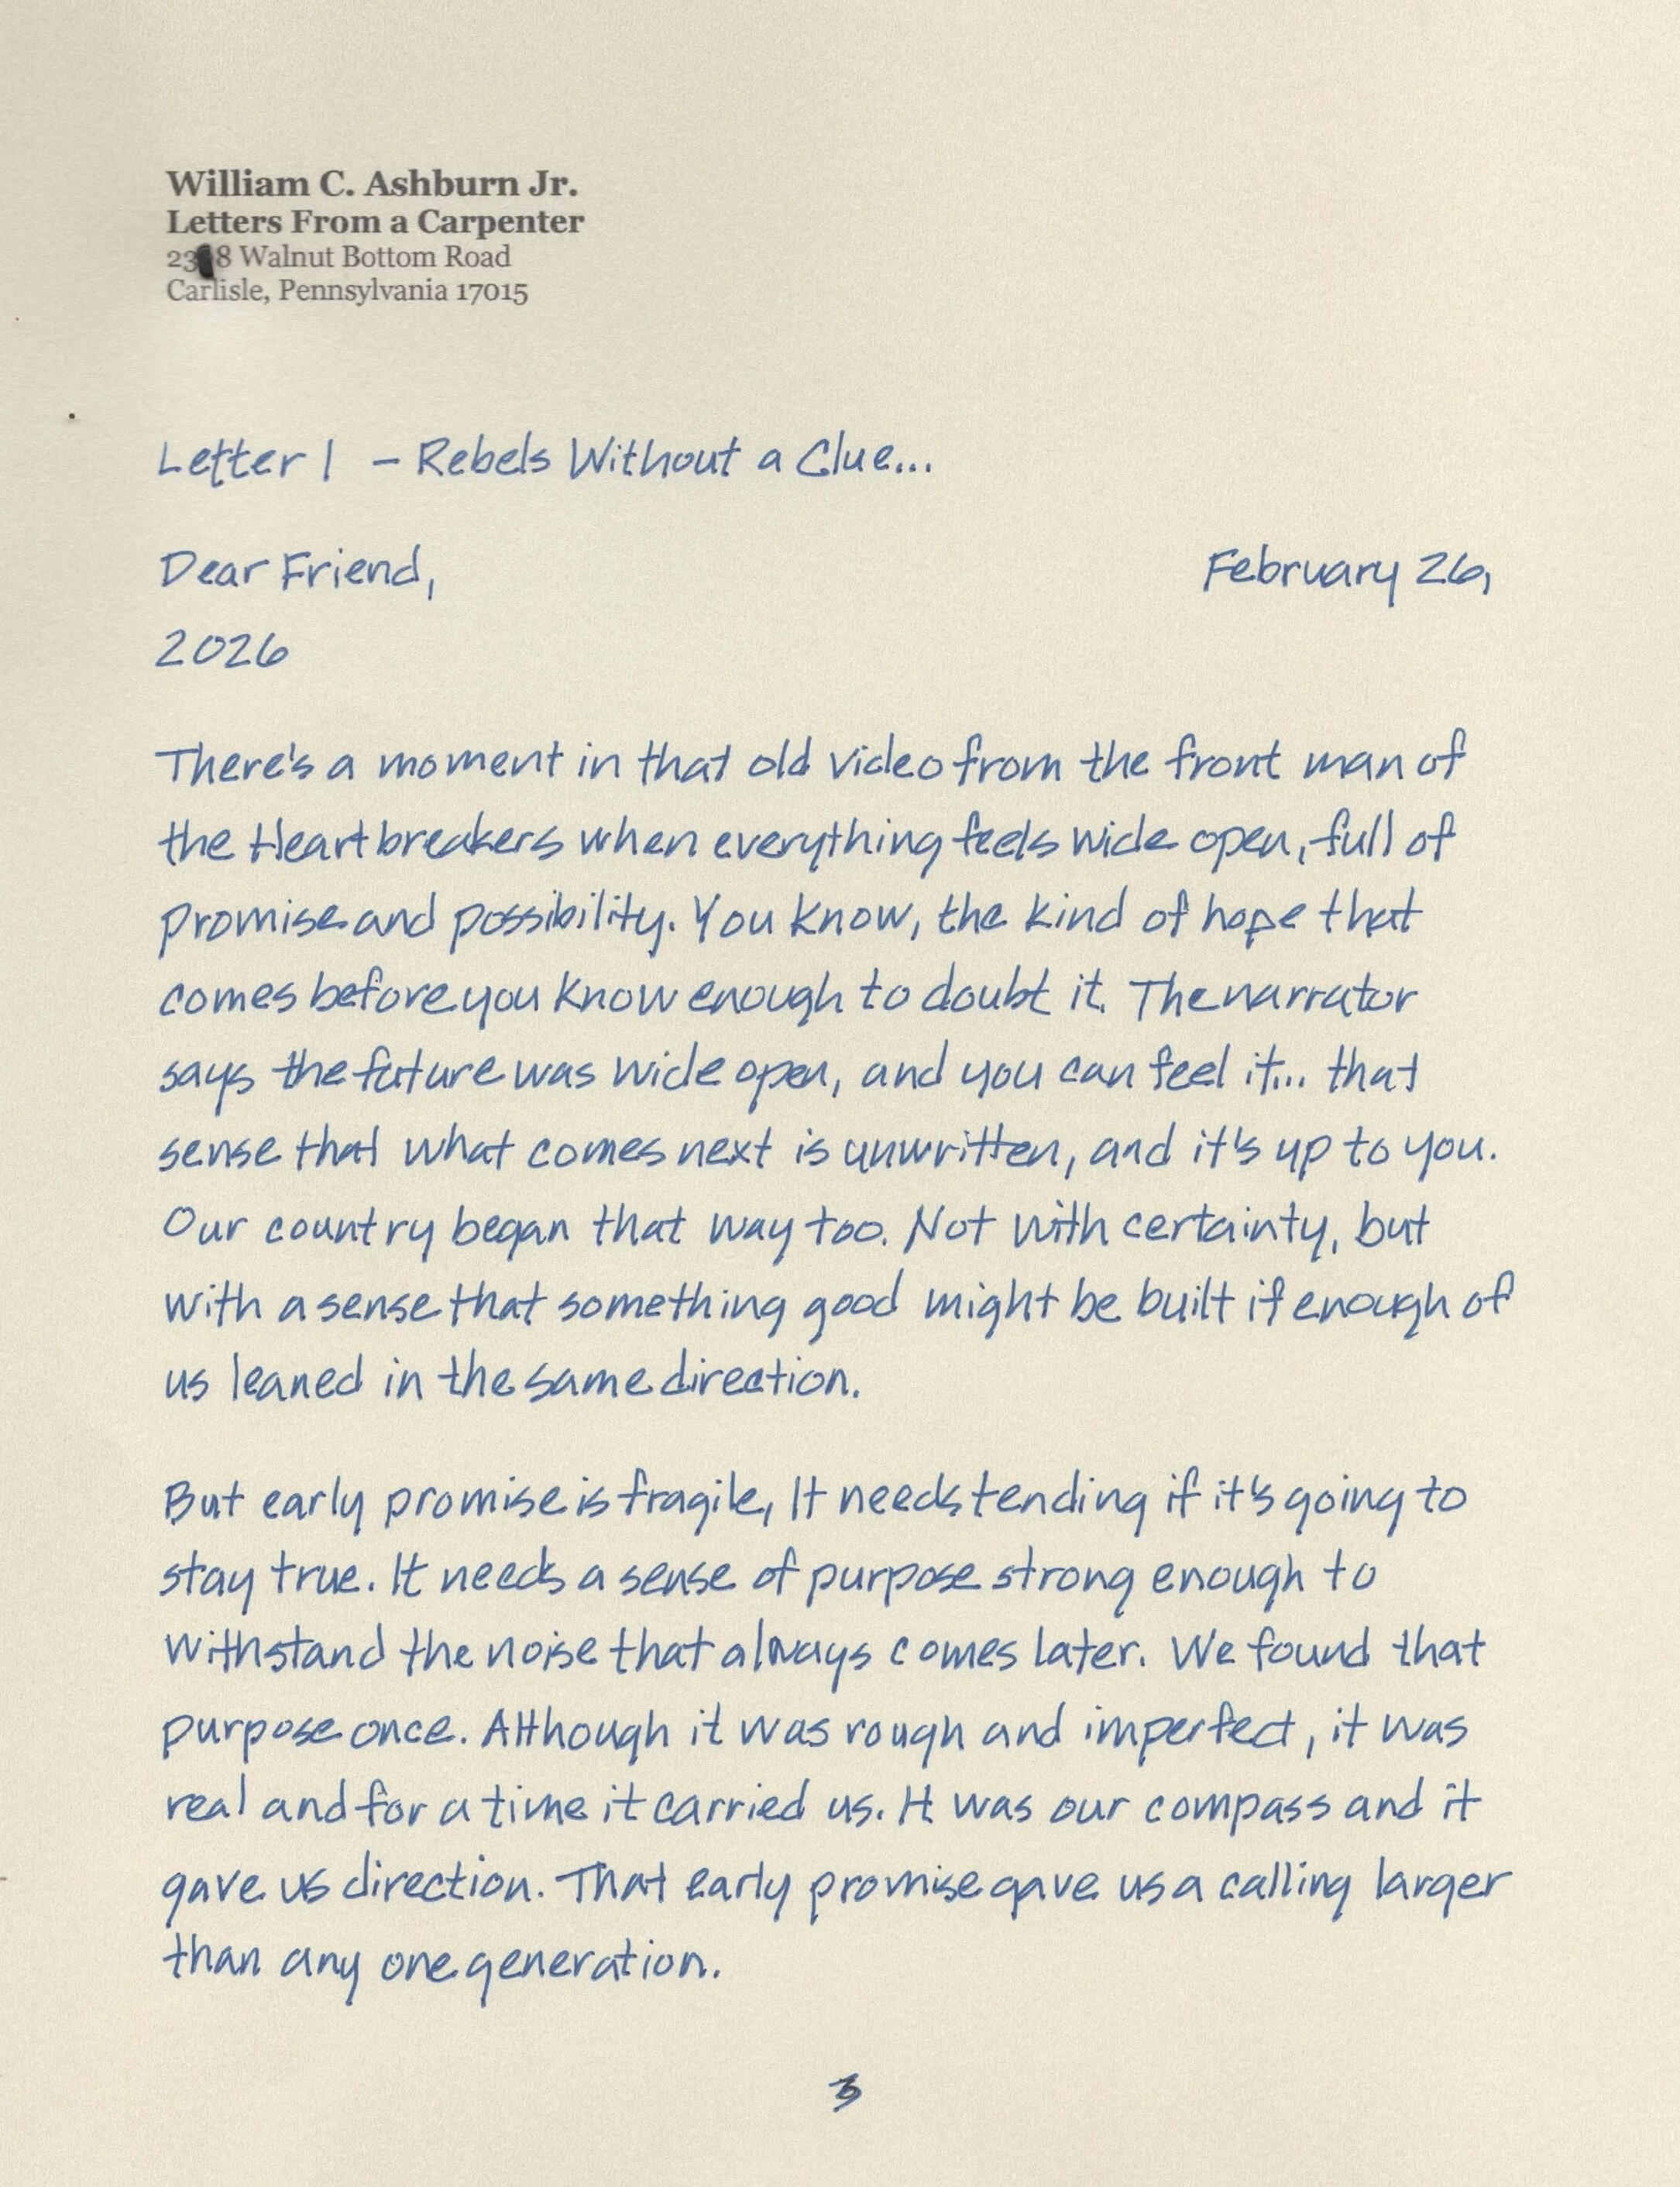 William C. Ashburn Jr.
Letters From a Carpenter
Walnut Bottom Road
Carlisle, Pennsylvania 17015
Letter 1 – Rebels Without a Clue...
Dear Friend, February 26,
2026
There's a moment in that old video from the front man of
the Heartbreakers when everything feels wide open, full of
promise and possibility. You know, the kind of hope that
comes before you know enough to doubt it. The narrator
says the future was wide open, and you can feel it... that
sense that what comes next is unwritten, and it's up to you.
Our country began that way too. Not with certainty, but
with a sense that something good might be built if enough of
us leaned in the same direction.
But early promise is fragile, It needs tending if it's going to
stay true. It needs a sense of purpose strong enough to
withstand the noise that always comes later. We found that
purpose once. Although it was rough and imperfect, it was
real and for a time it carried us. It was our compass and it
gave us direction. That early promise gave us a calling larger
than any one generation.